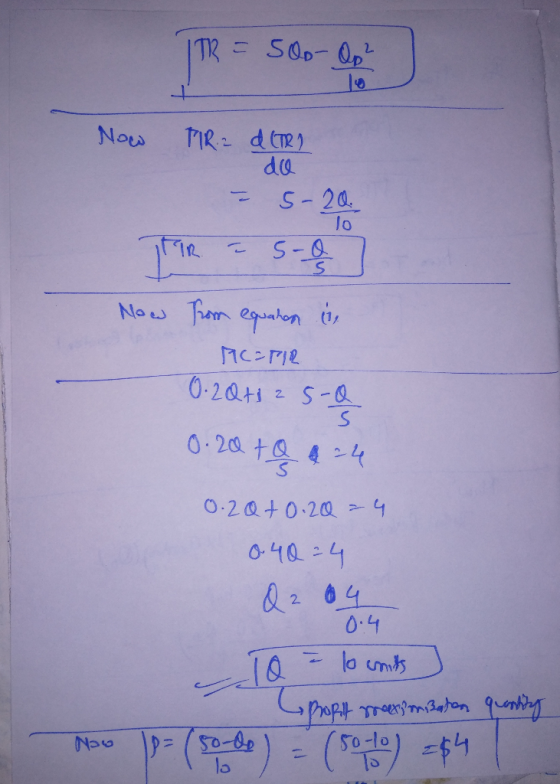 TR = 5Q_D - Q_D²/10
Now MR = d(TR)/dQ
= 5 - 2Q/10
MR = 5 - Q/5
Now from equation (i),
MC = MR
0.2Q+1 = 5 - Q/5
0.2Q + Q/5 = 4
0.2Q + 0.2Q = 4
0.4Q = 4
Q = 4/0.4
Q = 10 units
→ Profit maximization quantity
Now P = (50-Q_D/10) = (50-10/10) = $4